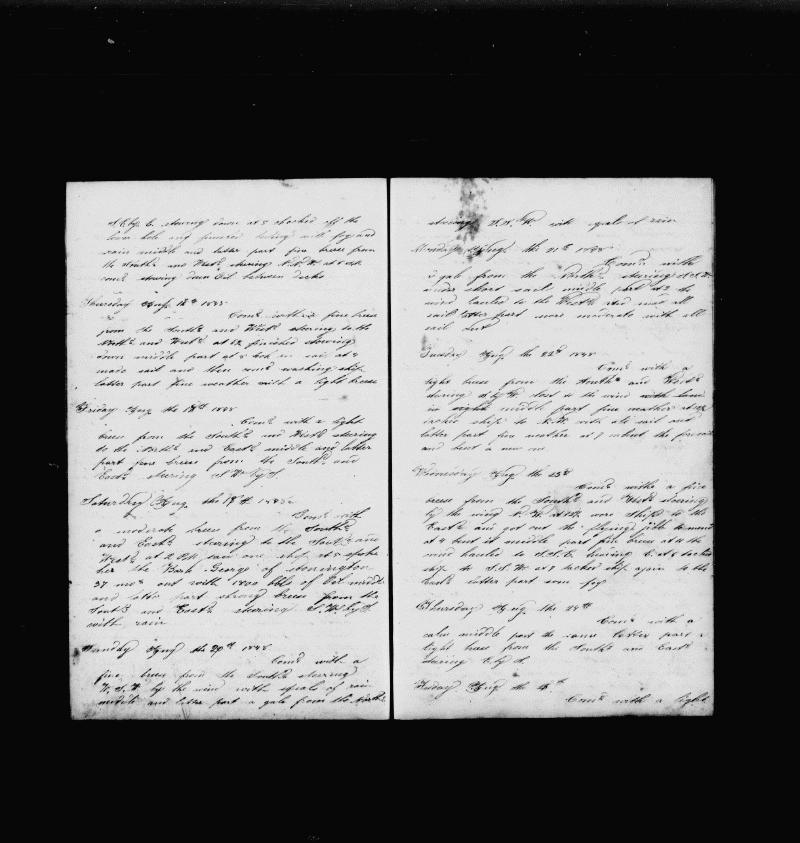 S E by E. stowing down at 5 chocked off the
and finished with fog and
rain middle and latter part fine breeze from
the Southd and Westd steering N.N.W. at 8 AM
comd stowing down Oil between decks
Thursday Aug 17th 1848
Comd with a fine breeze
from the Southd and Westd steering to the
Northd and Westd at 12 finished stowing
down middle part at 4
made sail and then comd washing ship
latter part fine weather with a light breeze
Friday Aug the 18th 1848
Comd with a light
breeze from the Southd and Westd steering
to the Northd and Eastd middle and latter
part fine breeze from the Southd and
Eastd steering S W by S.
Saturday Aug. the 19th 1848
Comd with
a moderate breeze from the Southd
and Eastd steering to the Southd and
Westd at 2 PM saw one ship at 5 spoke
her the Bark George of Stonington
27 mos out with 1800 bbls of Oil middle
and latter part strong breeze from the
Southd and Eastd steering S. W by S
with rain
Sunday Aug the 20th 1848
Comd with a
fine breeze from the Southd steering
W. S. W by the wind with squals of rain
middle and latter part a gale from the Northd
steering with squals of rain
Monday Aug the 21st 1848
Comd with
a gale from the Northd steering
under short sail middle part at 2 the
wind hauled to the Westd and made all
sail latter part more moderate with all
sail out
Tuesday Aug the 22nd 1848
Comd with a
light breeze from the Southd and Westd
steering close to the wind with land
in sight middle part fine weather at
tacked ship to N.W. with all sail out
latter part fine weather at 7 unbent the
and bent a new one
Wednesday Aug the 23d
Comd with a fine
breeze from the Southd and Westd steering
by the wind N. W. at wore ship to the
Eastd and got out the flying jibb
at 4 bent it middle part fine breeze at 12 the
wind hauled to S.S.E. heading E. at 6 tacked
ship to S.S.W. at 7 tacked ship again to the
Eastd latter part some fog
Thursday Aug the 24th
Comd with a
calm middle part the same latter part a
light breeze from the Southd and Eastd
steering E by S.
Friday Aug the 25th
Comd with a light